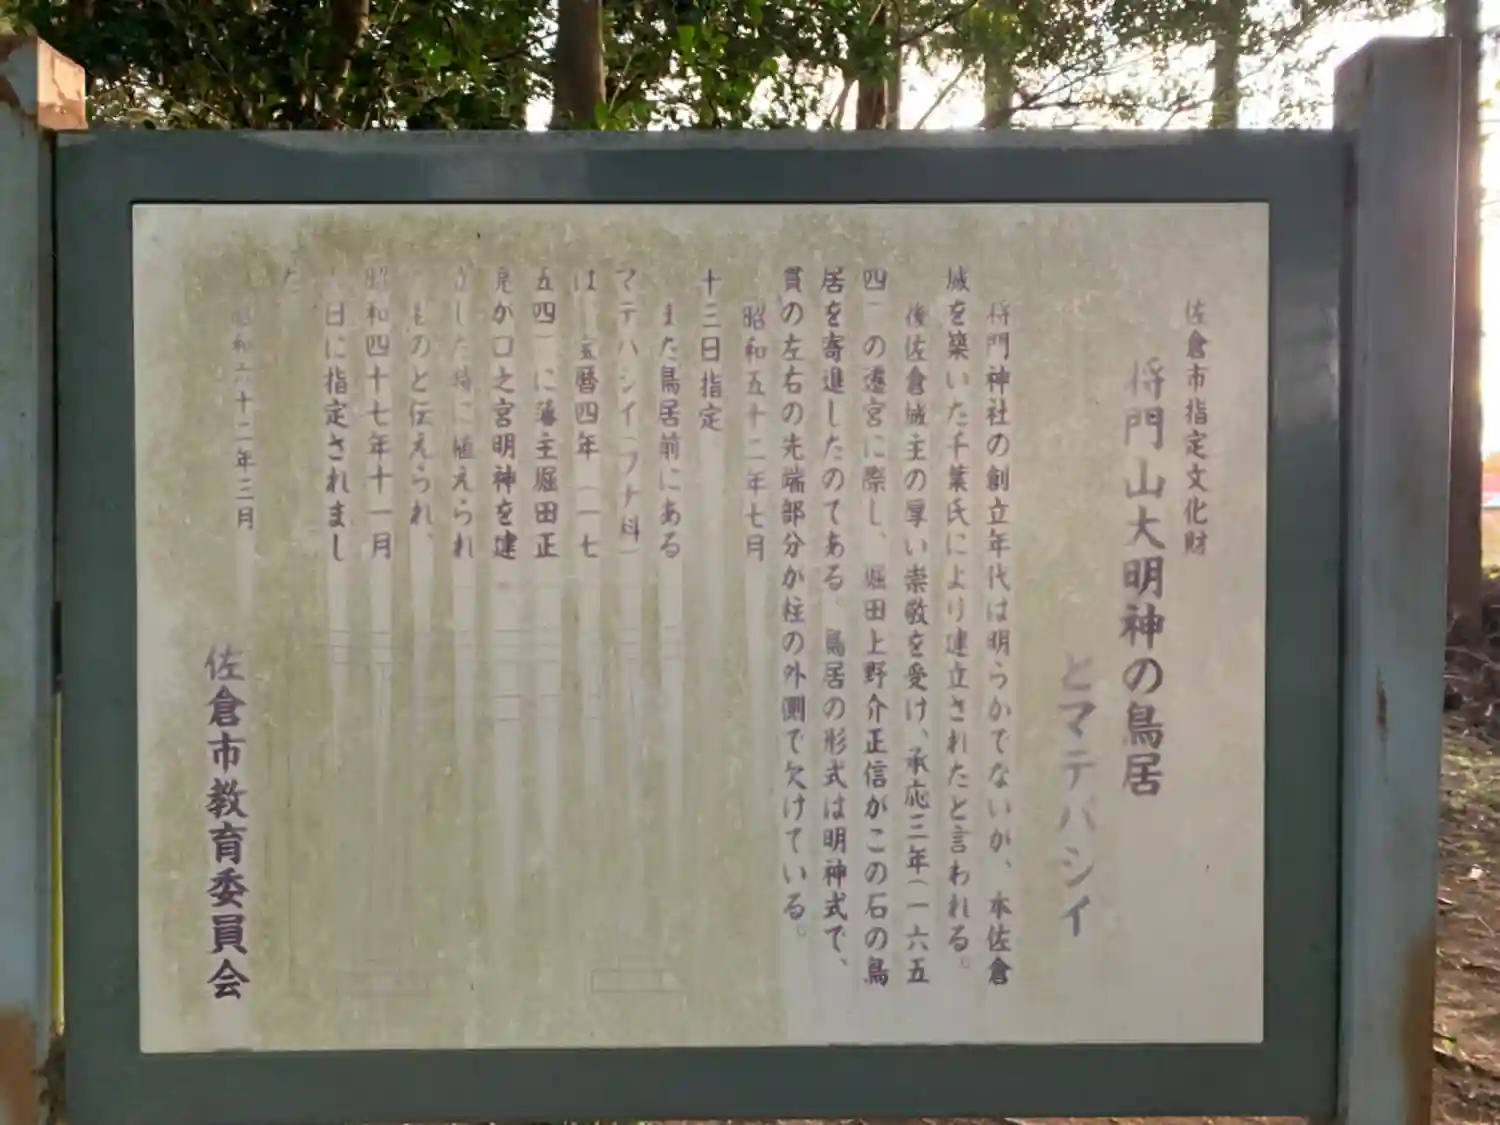 佐倉市指定文化財
将門山大明神の鳥居
とマテバシイ
将門神社の創立年代は明らかでないが、本佐倉
城を築いた千葉氏により建立されたと言われる。
後佐倉城主の厚い崇敬を受け、承応三年(一六五
四)の遷宮に際し、堀田上野介正信がこの石の鳥
居を寄進したのである。鳥居の形式は明神式で、
貫の左右の先端部分が柱の外側で欠けている。
昭和五十二年七月
十三日指定
また鳥居前にある
マテバシイ(ブナ科)
は、宝暦四年(一七
五四)に藩主堀田正
亮が口之宮明神を建
立した時に植えられ
ものと伝えられ、
昭和四十七年十一月
日に指定されまし
た
昭和六十二年三月
佐倉市教育委員会